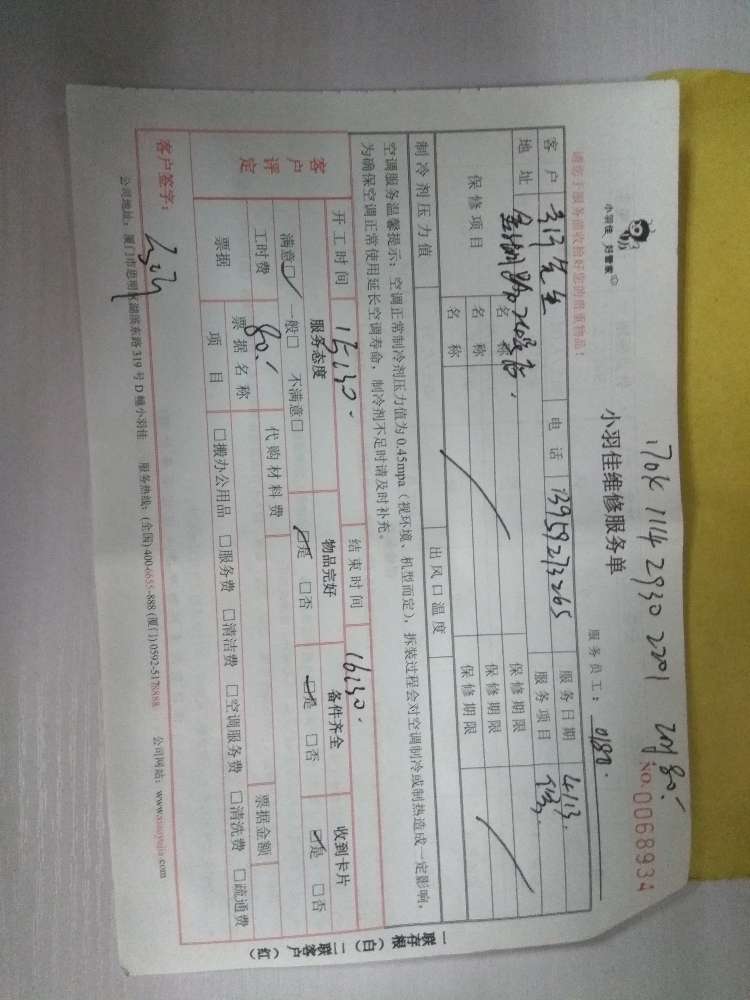 170K 1114 2930 2201
小羽佳 好管家
小羽佳维修服务单
请您于服务前收检好您的贵重物品!
服务员工: 0180.
NO.0068934
客户 先生 电话 13959273265 服务日期 4/13.
地址 服务项目
保修项目 名称 保修期限
名称 保修期限
名称 保修期限
制冷剂压力值 出风口温度
空调服务温馨提示:空调正常制冷剂压力值为0.45mpa(视环境、机型而定),拆装过程会对空调制冷或制热造成一定影响,
为确保空调正常使用延长空调寿命,制冷剂不足时请及时补充。
开工时间 15:30. 结束时间 16:30.
客户评定 服务态度 物品完好 备件齐全 收到卡片
满意□ 一般□ 不满意□ □是 □否 □是 □否 □是 □否
工时费 80. 代购材料费 票据金额
票据 票据名称
项目 □搬办公用品 □服务费 □清洁费 □空调服务费 □清洗费 □疏通费
客户签字:
公司地址:厦门市思明区湖滨东路319号D幢小羽佳 服务热线:(全国)400-6655-888 (厦门)0592-5178888 公司网站:www.xiaoyujia.com
一联存根(白)二联客户(红)